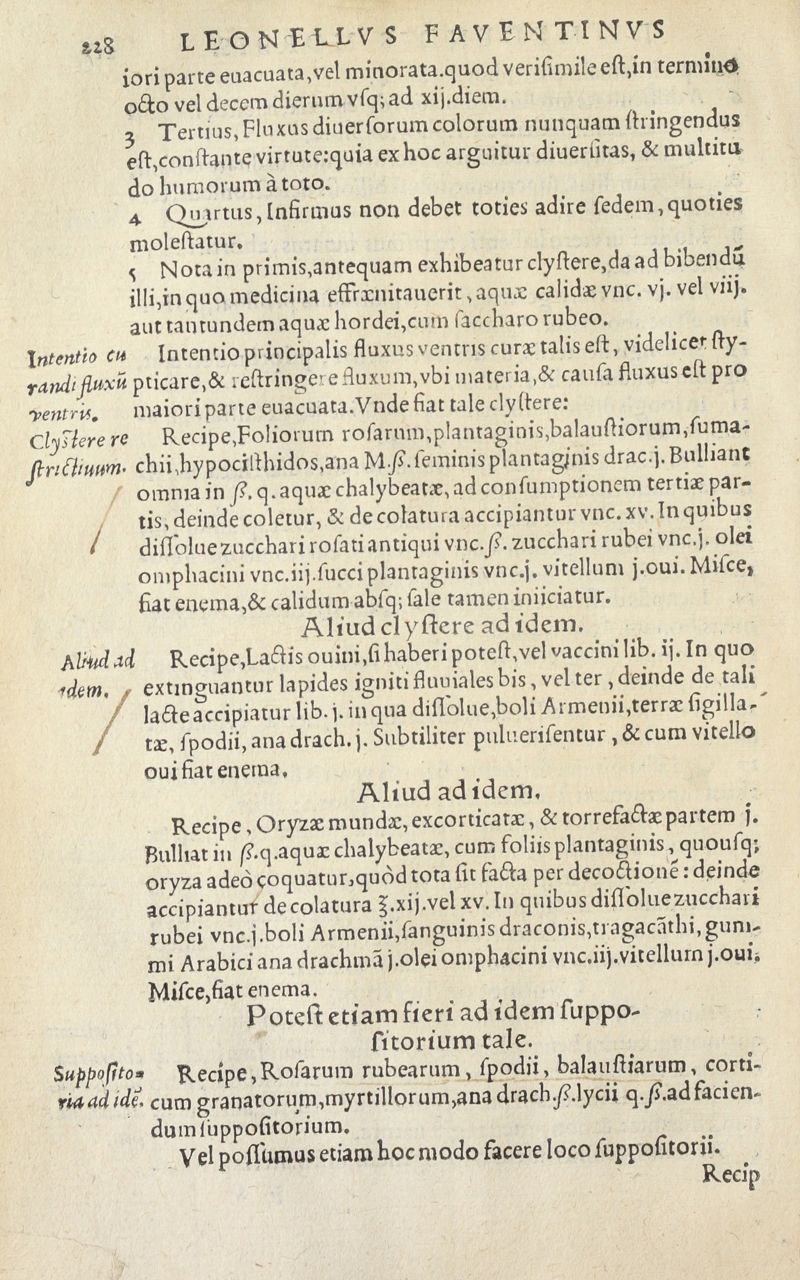 228 LEONELLVS FAVENTINVS
iori parte euacuata,vel minorata.quod verisimile est,in termino
octo vel decem dierum vsq; ad xij.diem.
3 Tertius, Fluxus diuersorum colorum nunquam stringendus
est,constante virtute:quia ex hoc arguitur diuersitas, & multitu
do humorum à toto.
4 Quartus, Infirmus non debet toties adire sedem, quoties
molestatur.
5 Nota in primis,antequam exhibeatur clystere,da ad bibendū
illi,in quo medicina effrænitauerit, aquæ calidæ vnc. vj. vel viij.
aut tantundem aquæ hordei,cum saccharo rubeo.
Intentio cu
randi fluxū
ventris.
Intentio principalis fluxus ventris curæ talis est, videlicet sty-
pticare,& restringere fluxum,vbi materia,& causa fluxus est pro
maiori parte euacuata.Vnde fiat tale clystere:
Clystere re
strictiuum.
Recipe,Foliorum rosarum,plantaginis,balaustiorum,suma-
chii,hypocisthidos,ana M.ß. seminis plantaginis drac.j. Bulliant
omnia in ß. q. aquæ chalybeatæ, ad consumptionem tertiæ par-
tis, deinde coletur, & de colatura accipiantur vnc. xv. In quibus
dissolue zucchari rosati antiqui vnc.ß. zucchari rubei vnc.j. olei
omphacini vnc.iij.succi plantaginis vnc.j. vitellum j.oui. Misce,
fiat enema,& calidum absq; sale tamen iniiciatur.
Aliud clystere ad idem.
Aliud ad
idem.
Recipe,Lactis ouini,si haberi potest,vel vaccini lib. ij. In quo
extinguantur lapides igniti fluuiales bis, vel ter, deinde de tali
lacte accipiatur lib. j. in qua dissolue,boli Armenii,terræ sigilla-
tæ, spodii, ana drach. j. Subtiliter puluerisentur, & cum vitello
oui fiat enema.
Aliud ad idem.
Recipe, Oryzæ mundæ, excorticatæ, & torrefactæ partem j.
Bulliat in ß.q.aquæ chalybeatæ, cum foliis plantaginis, quousq;
oryza adeò coquatur,quòd tota sit facta per decoctionē: deinde
accipiantur de colatura ℥.xij.vel xv. In quibus dissolue zucchari
rubei vnc.j.boli Armenii,sanguinis draconis,tragacāthi, gum-
mi Arabici ana drachmā j.olei omphacini vnc.iij.vitellum j.oui.
Misce,fiat enema.
Potest etiam fieri ad idem suppo-
sitorium tale.
Supposito-
ria ad idē.
Recipe, Rosarum rubearum, spodii, balaustiarum, corti-
cum granatorum,myrtillorum,ana drach.ß.lycii q.ß.ad facien-
dum suppositorium.
Vel possumus etiam hoc modo facere loco suppositorii.
Recip